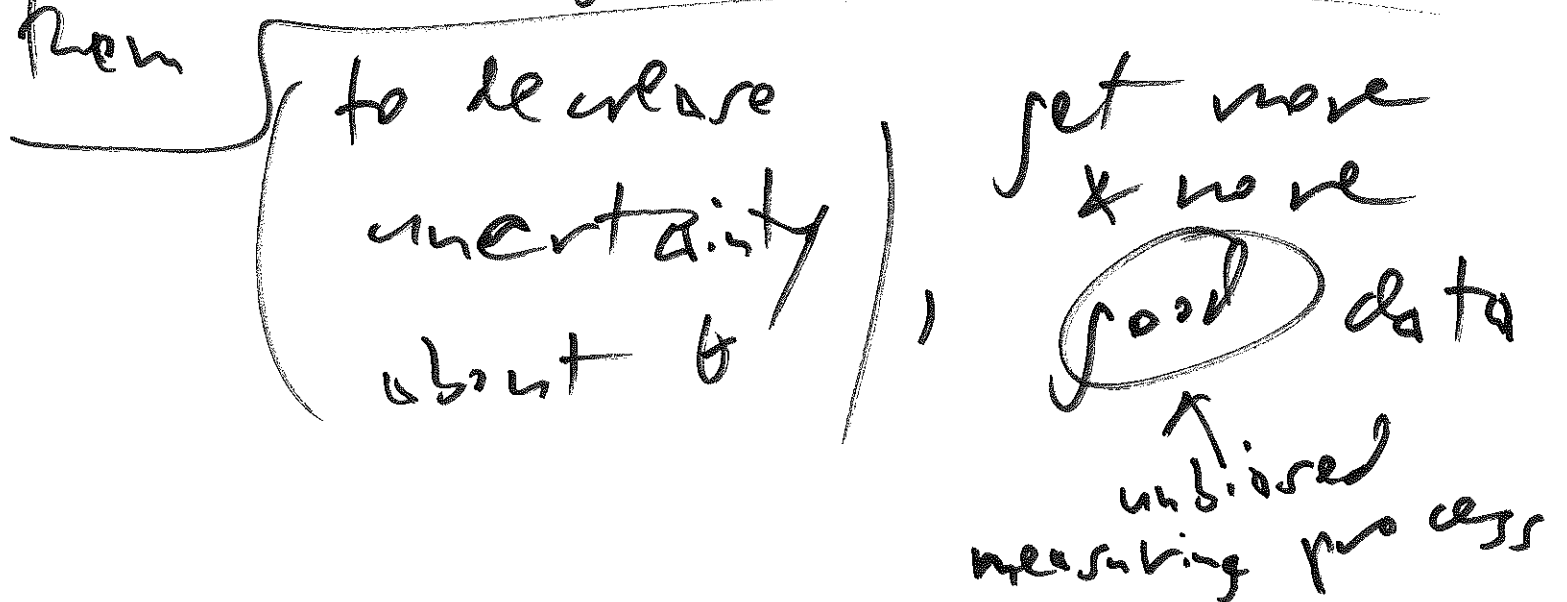 them
(to decrease
uncertainty
about θ), get more
& more
good data
unbiased
measuring process